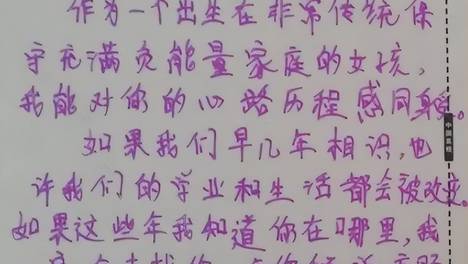 作为一个出生在非常传统保
守充满负能量家庭的女孩，
我能对你的心路历程感同身
如果我们早几年相识，也
许我们的学业和生活都会被改变。
如果这些年我知道你在哪里，我